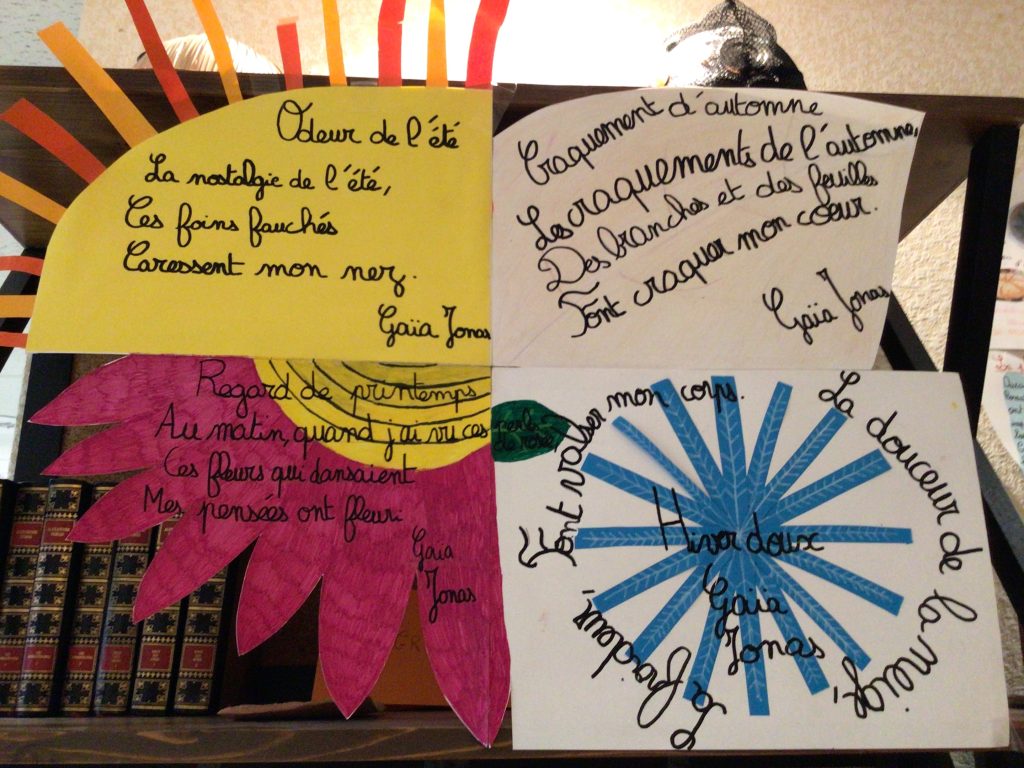 Odeur de l'été
La nostalgie de l'été,
Ces foins fauchés
Caressent mon nez.
Gaïa Jonas
Craquement d'automne
Les craquements de l'automne,
Des branches et des feuilles
Font craquer mon coeur.
Gaïa Jonas
Regard de printemps
Au matin, quand j'ai vu ces perles
de rosée
Ces fleurs qui dansaient
Mes pensées ont fleuri
Gaia
Jonas
Hiver doux
Gaïa
Jonas
La douceur de la neige,
La froideur,
Font valser mon corps.